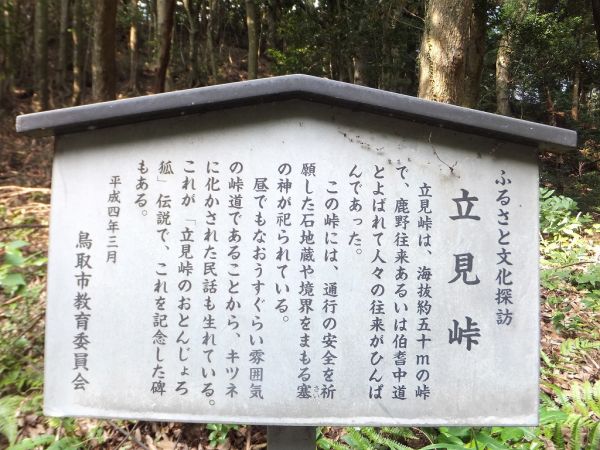 ふるさと文化探訪
立見峠
立見峠は、海抜約五十mの峠
で、鹿野往来あるいは伯耆中道
とよばれて人々の往来がひんぱ
んであった。
この峠には、通行の安全を祈
願した石地蔵や境界をまもる塞
さい
の神が祀られている。
昼でもなおうすぐらい雰囲気
の峠道であることから、キツネ
に化かされた民話も生れている。
これが「立見峠のおとんじょろ
狐」伝説で、これを記念した碑
もある。
平成四年三月
鳥取市教育委員会